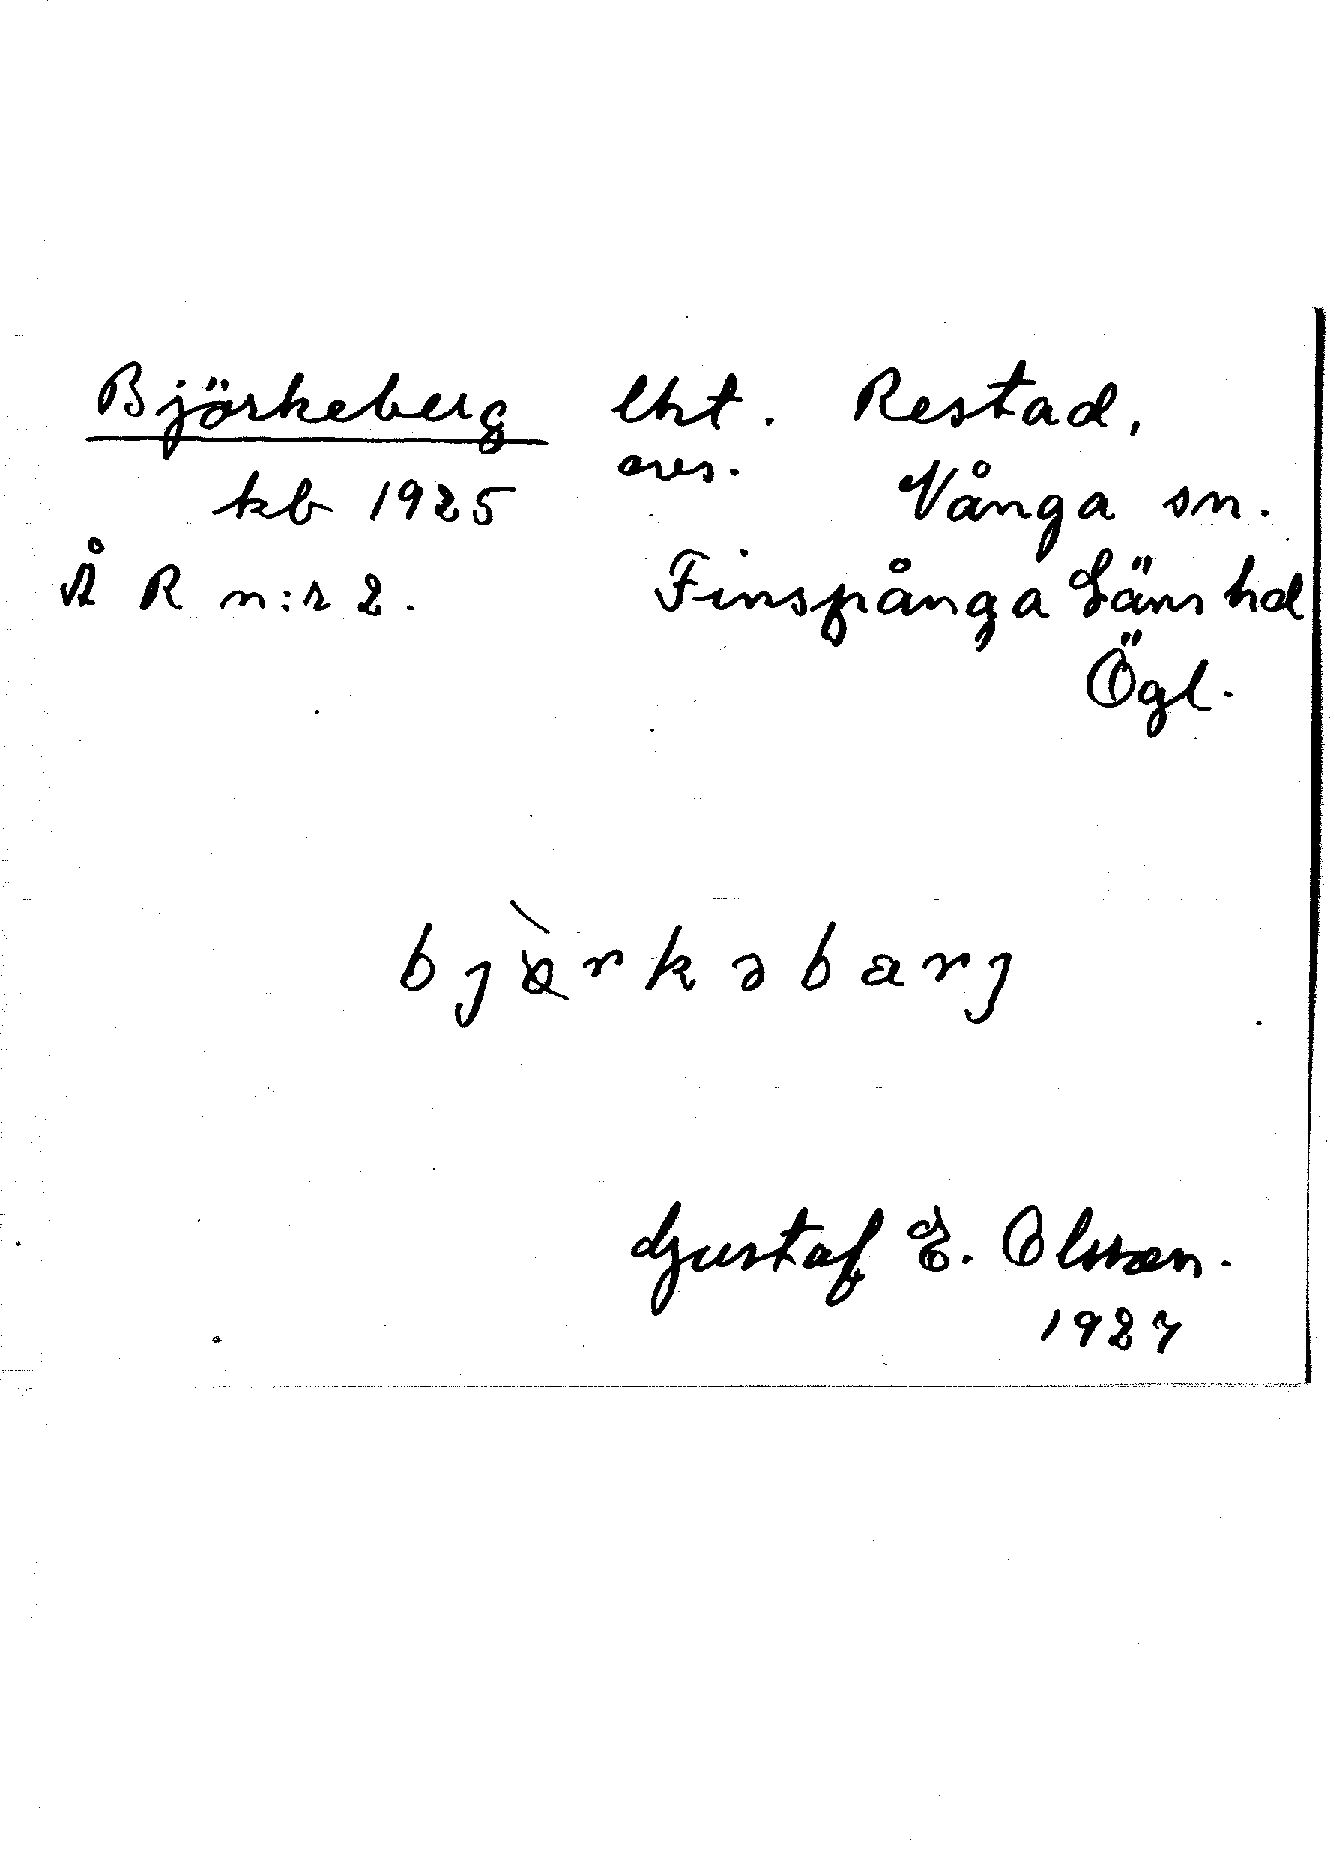 Björkeberg lht. Restad,
kb 1925 avs. Vånga sn.
Å R n:r 2. Finspånga Läns hd
Ögl.
bjèrkəbærj
Gustaf E. Olsson.
1927